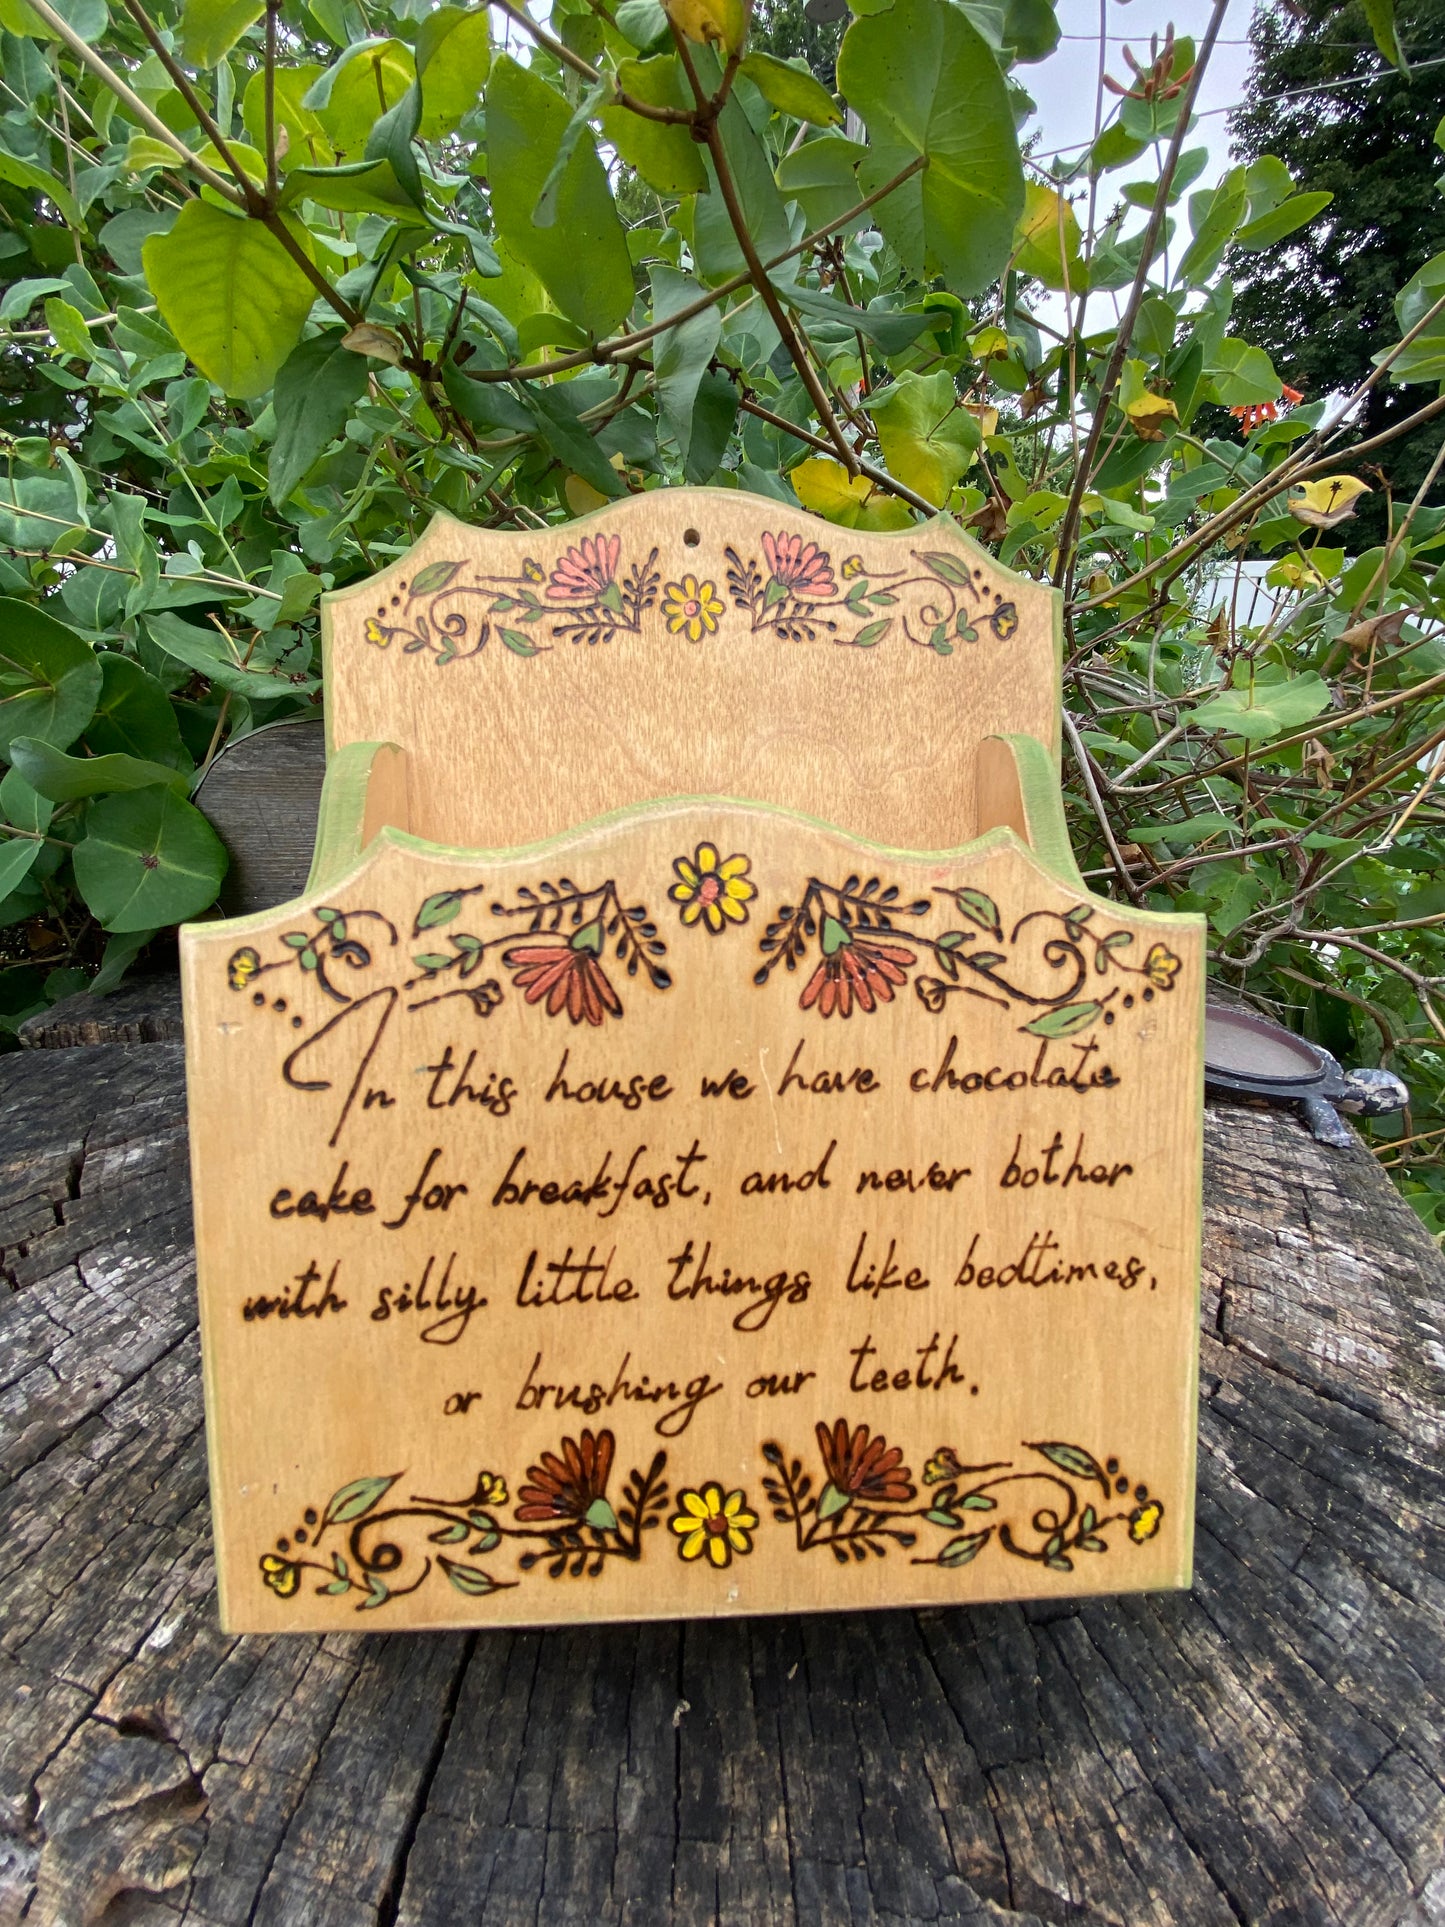 In this house we have chocolate
cake for breakfast, and never bother
with silly little things like bedtimes,
or brushing our teeth.